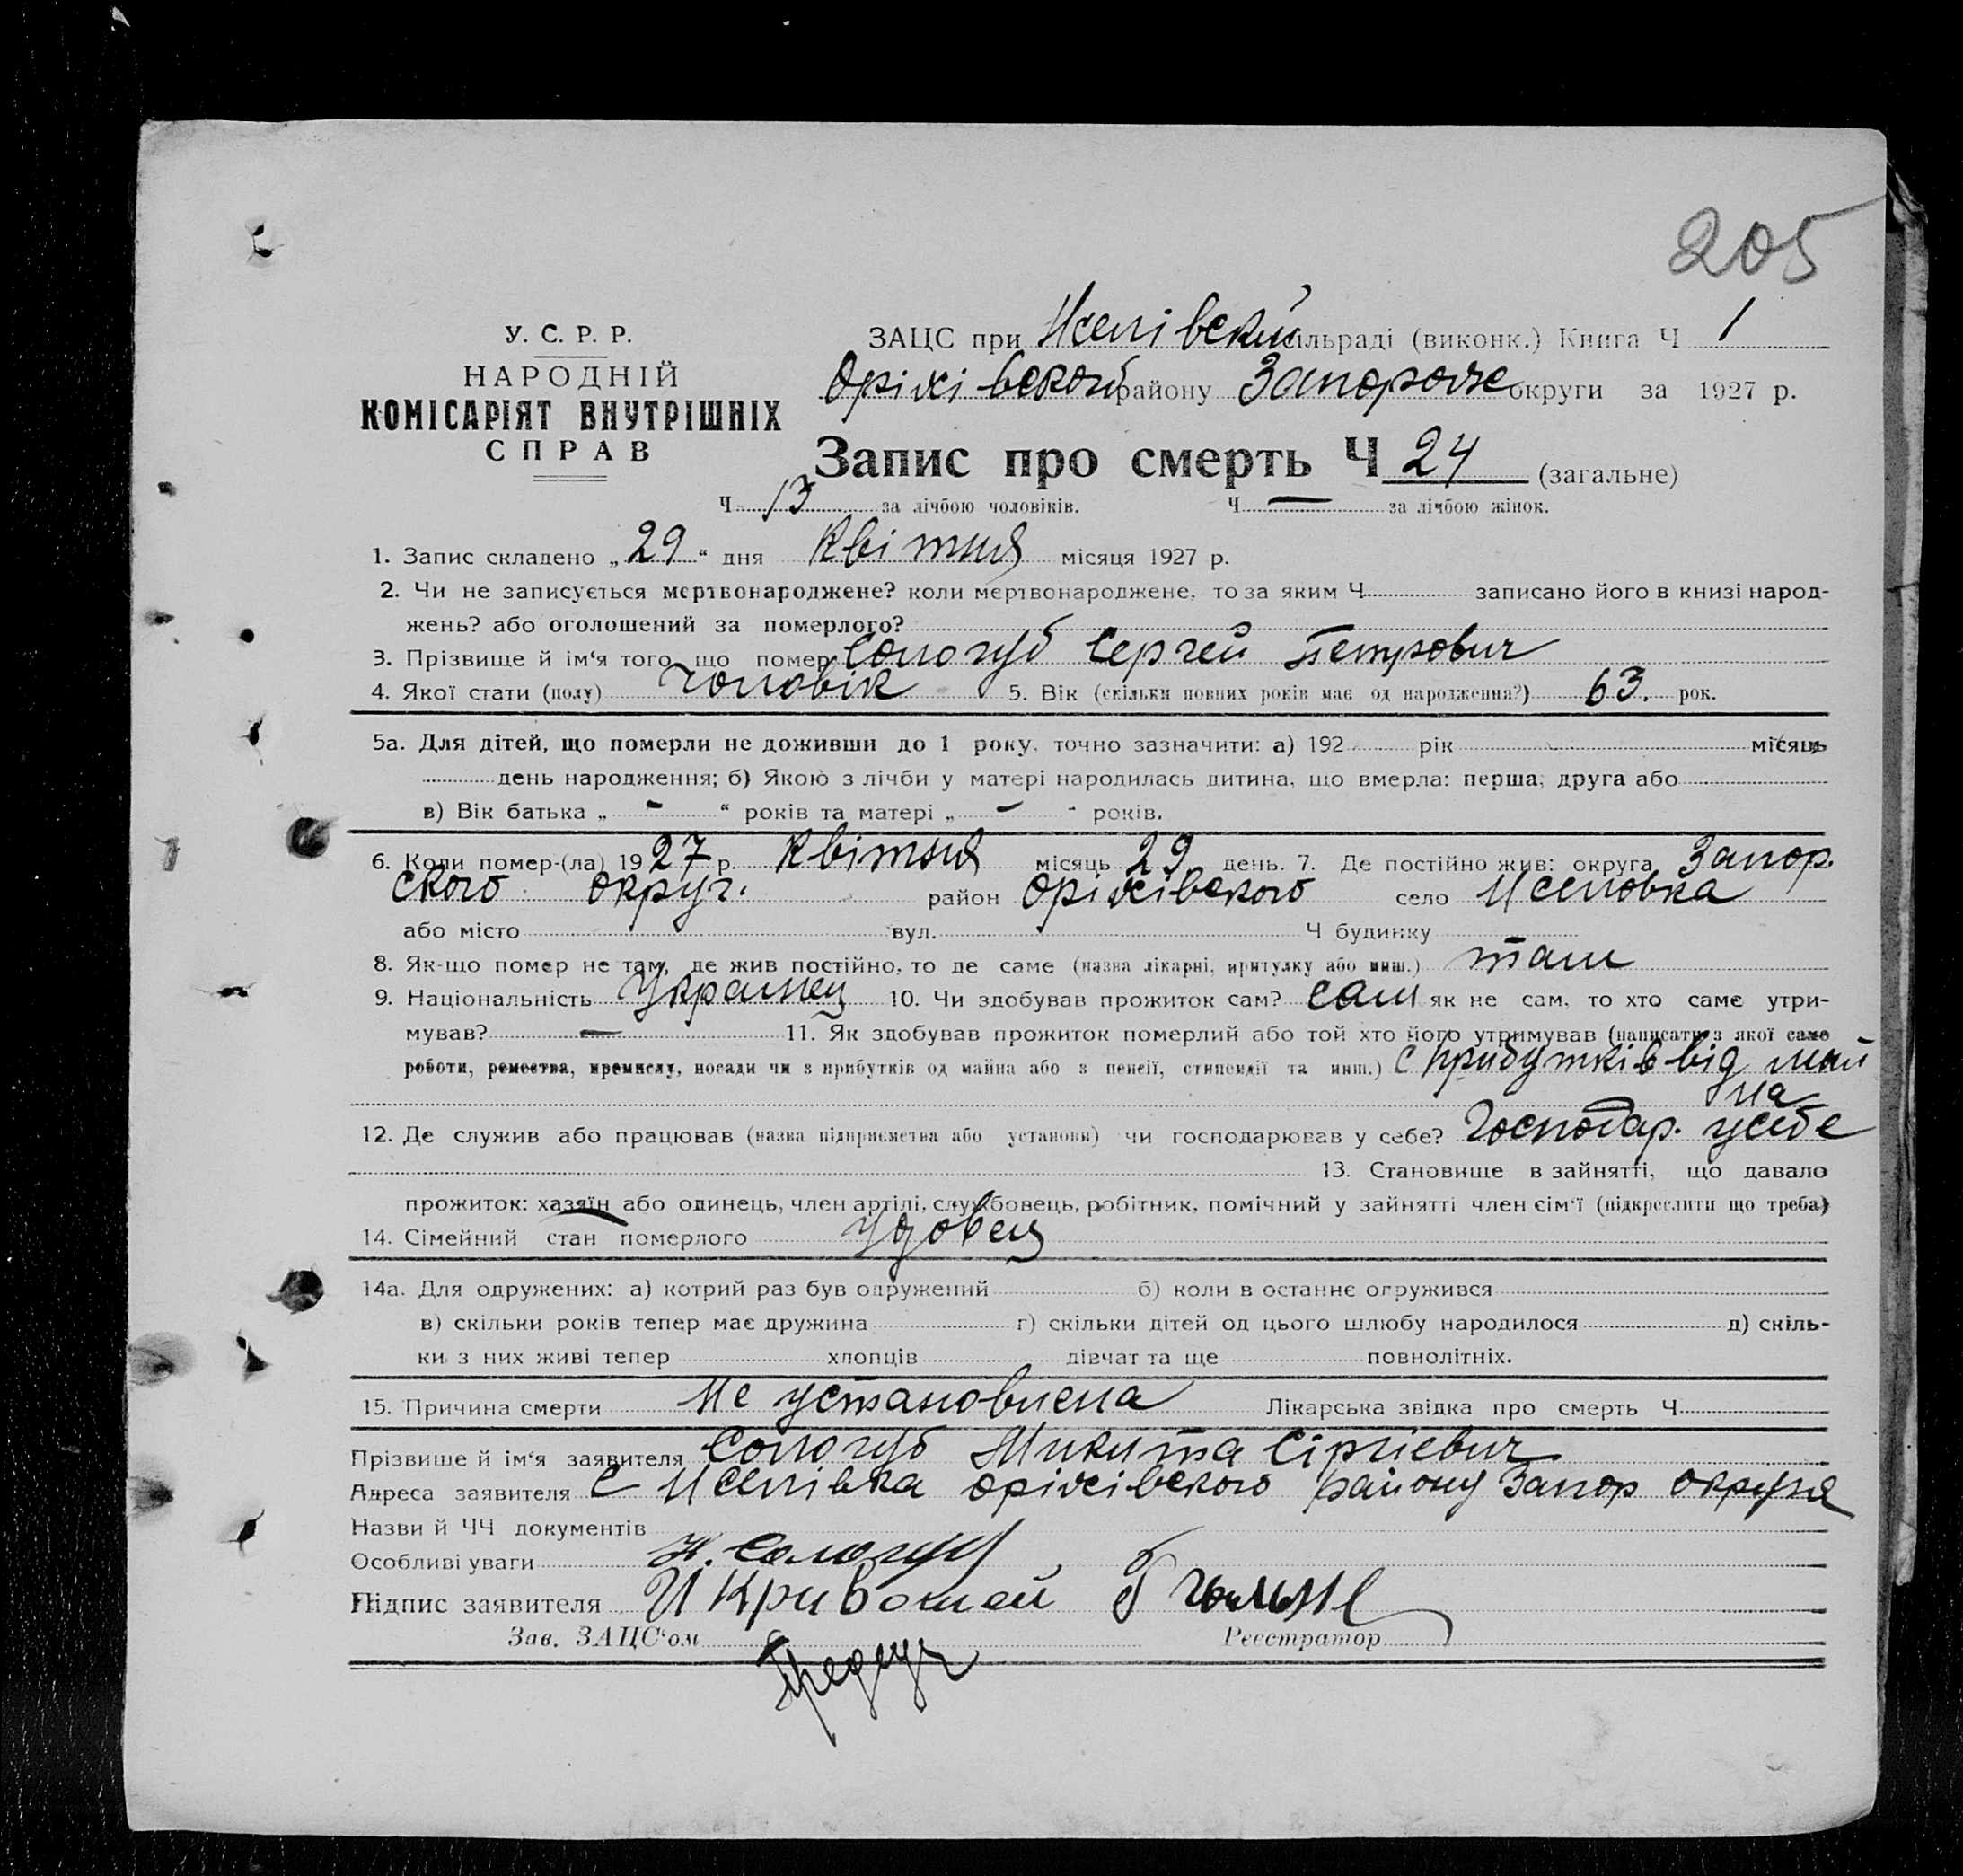 205
У. С. Р. Р.
НАРОДНІЙ
КОМІСАРІЯТ ВНУТРІШНІХ
СПРАВ
ЗАЦС при сільраді (виконк.) Книга Ч 1
Оріхівской району Запорожс округи за 1927 р.
Запис про смерть Ч 24 (загальне)
Ч 13 за лічбою чоловіків. Ч — за лічбою жінок.
1. Запис складено „29“ дня Квітня місяця 1927 р.
2. Чи не записується мертвонароджене? коли мертвонароджене, то за яким Ч записано його в книзі народ-
жень? або оголошений за померлого?
3. Прізвище й ім‘я того, що помер Сологуб Сергей Петрович
4. Якої стати (полу) Чоловік 5. Вік (скільки повних років має од народження?) 63. рок.
5а. Для дітей, що померли не доживши до 1 року, точно зазначити: а) 192 рік місяць
день народження; б) Якою з лічби у матері народилась дитина, що вмерла: перша, друга або
в) Вік батька „ - “ років та матері „ - “ років.
6. Коли помер-(ла) 1927 р. Квітня місяць 29 день. 7. Де постійно жив: округа Запор.
ского округ. район Оріхівского село
або місто вул. Ч будинку
8. Як-що помер не там, де жив постійно, то де саме (назва лікарні, притулку або инш.) там
9. Національність Украинец 10. Чи здобував прожиток сам? сам як не сам, то хто саме утри-
мував? — 11. Як здобував прожиток померлий або той хто його утримував (написати з якої саме
роботи, ремества, премислу, посади чи з прибутків од майна або з пенсії, стипендії та инш.) С прибутків від май
на
12. Де служив або працював (назва підприємства або установи) чи господарював у себе? Господар. усебе
13. Становище в зайнятті, що давало
прожиток: хазяїн або одинець, член артілі, службовець, робітник, помічний у зайнятті член сім‘ї (підкреслити що треба)
14. Сімейний стан померлого Удовец
14а. Для одружених: а) котрий раз був одружений б) коли в останнє огружився
в) скільки років тепер має дружина г) скільки дітей од цього шлюбу народилося д) скіль-
ки з них живі тепер хлопців дівчат та ще повнолітніх.
15. Причина смерти Не установлена Лікарська звідка про смерть Ч
Прізвище й ім‘я заявителя Сологуб Микита Сіргіевич
Адреса заявителя С Оріхівского району Запор округа
Назви й ЧЧ документів
Особливі уваги Н. Сологуб
Підпис заявителя И Кривошей
Зав. ЗАЦС‘ом Реєстратор